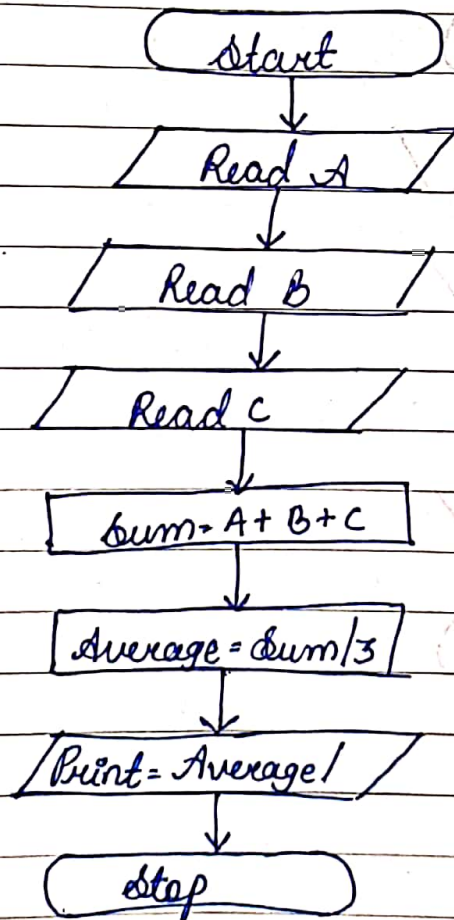 Start
Read A
Read B
Read C
Sum = A + B + C
Average = Sum/3
Print = Average/
Stop